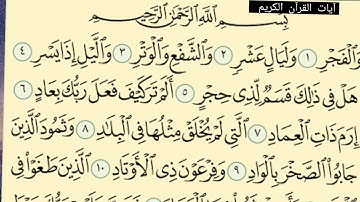 آيات القرآن الكريم
بِسْمِ اللَّهِ الرَّحْمَٰنِ الرَّحِيمِ
وَالْفَجْرِ ١ وَلَيَالٍ عَشْرٍ ٢ وَالشَّفْعِ وَالْوَتْرِ ٣ وَاللَّيْلِ إِذَا يَسْرِ ٤
هَلْ فِي ذَٰلِكَ قَسَمٌ لِّذِي حِجْرٍ ٥ أَلَمْ تَرَ كَيْفَ فَعَلَ رَبُّكَ بِعَادٍ ٦
إِرَمَ ذَاتِ الْعِمَادِ ٧ الَّتِي لَمْ يُخْلَقْ مِثْلُهَا فِي الْبِلَادِ ٨ وَثَمُودَ الَّذِينَ
جَابُوا الصَّخْرَ بِالْوَادِ ٩ وَفِرْعَوْنَ ذِي الْأَوْتَادِ ١٠ الَّذِينَ طَغَوْا فِي